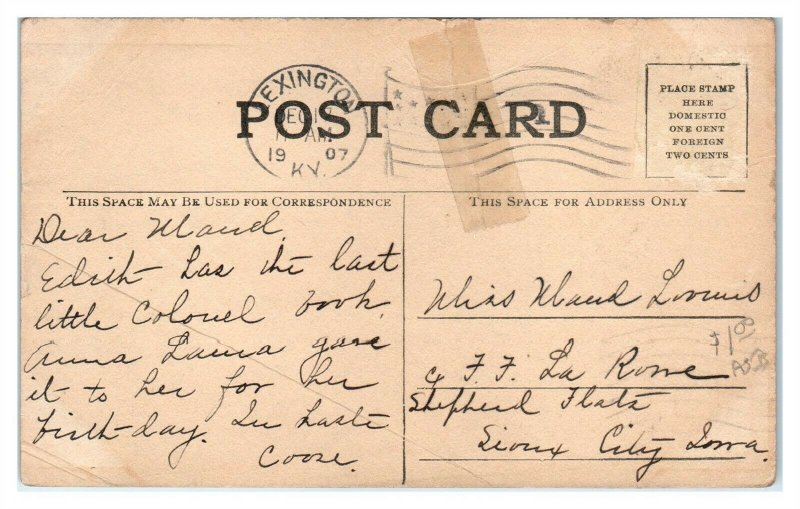 LEXINGTON
DEC 1
AM
19 07
KY.
POST CARD
PLACE STAMP
HERE
DOMESTIC
ONE CENT
FOREIGN
TWO CENTS
THIS SPACE MAY BE USED FOR CORRESPONDENCE
THIS SPACE FOR ADDRESS ONLY
Dear Maud,
Edith has the last
little Colonel book.
Anna Laura gave
it to her for her
birth-day. In haste
Coose.
Miss Maud Loomis
c/o F. F. La Rowe
Shepherd Flats
Sioux City Iowa.